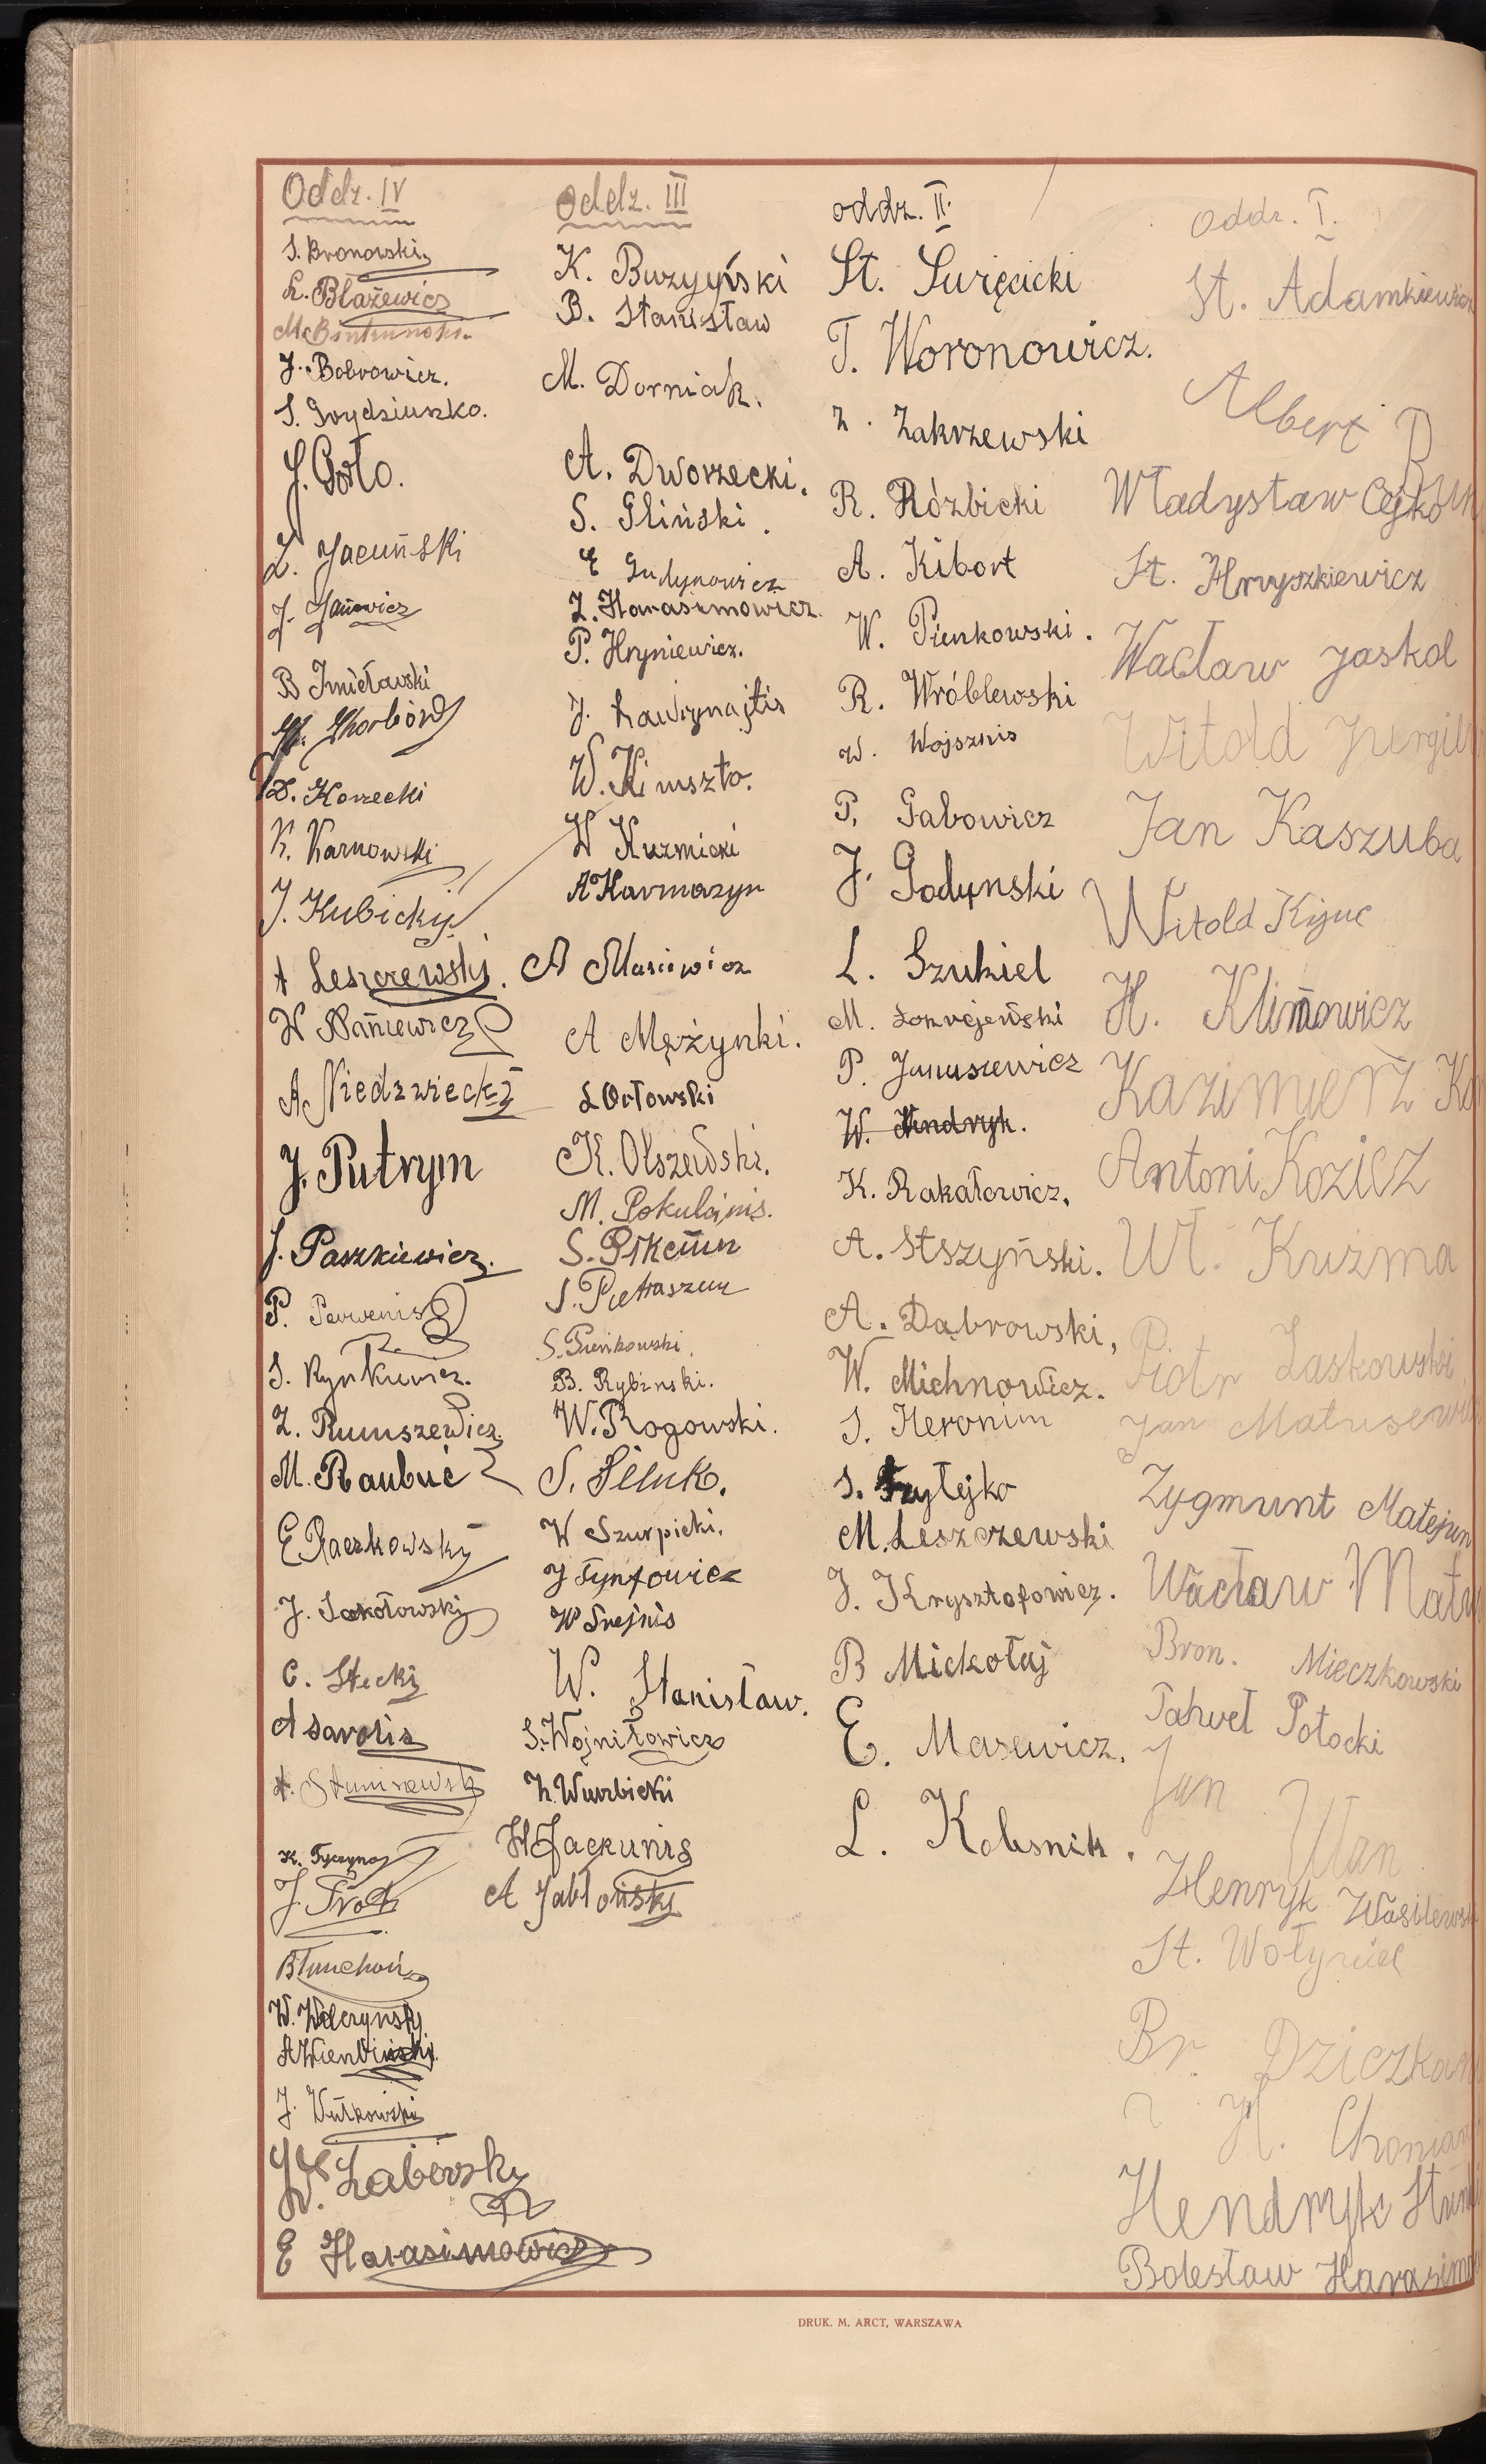 Oddz. IV
S. Bronowski
L. Błażewicz
J. Bobrowicz.
S. Grydziuszko.
J. Goto.
Z. Jacuński
J. Janowicz
B Imiełavski
D. Korzecki
K. Karnowski
J. Kubicky
A Leszczewski.
W Naniewicz
A Niedzwiecki
J. Putrym
J. Paszkiewicz.
P. Perwenis
S. Rynkiewicz.
Z. Rumszewicz
M. Raubuć
E Raczkowsky
J. Sokołowski
C. Stecki
A Sarolis
K. Tyczyno
J. Trot
B Tunchoń
W. Welczynski
J. Wutkowski
W. Zaberski
E Harasimowicz
Oddz. III
K. Buzyyński
B. Stanisław
M. Dorniak.
A. Dworzecki.
S. Gliński.
E Gudynowicz
Z. Harasimowicz.
P. Hryniewicz.
J. Ławrynajtis
W. Kimszto.
W Kuzmicki
A Karmazyn
A Masiewicz
A Mężynki.
L Orłowski
K. Olszewski.
M. Pokulajnis.
S. Pietraszun
S. Pieńkowski.
B. Rybinski.
W. Rogowski.
S. Siluk.
W Szurpicki.
J Tyntowicz
W Snejnis
W. Stanisław.
S. Wojniłowicz
Z. Wurbicki
H Jackunis
A Jabłoński
oddz. II.
St. Swięcicki
T. Woronowicz.
Z. Zakrzewski
R. Rózbicki
A. Kibort
W. Pienkowski.
R. Wróblewski
W. Wojsznis
P. Gabowicz
J. Godynski
L. Szukiel
P. Januszewicz
W. Andryk.
K. Rakałowicz.
A. Stszyński.
A. Dąbrowski.
W. Michnowicz.
S. Heronim
S. Frytejko
M. Leszczewski
J. Krysztofowicz.
B Mickołaj
E. Masewicz.
L. Kolesnik.
Oddz. I.
St. Adamkiewicz
Albert B
Władysław Cejko
St. Hryszkiewicz
Wacław Jaskol
Witold Jurgiel
Jan Kaszuba
Witold Kijuc
H. Klimowicz
Kazimierz Ko
Antoni Kozicz
Wł. Kuźma
Piotr Laskowski
Jan Matusewicz
Zygmunt Matejun
Wacław Matu
Bron. Mieczkowski
Pahveł Potocki
Jan Ułan
Henryk Wasilewsk
St. Wołyniec
Br. Dziczkan
H. Chonian
Hendryk
Bolesław Harasimo
DRUK. M. ARCT, WARSZAWA